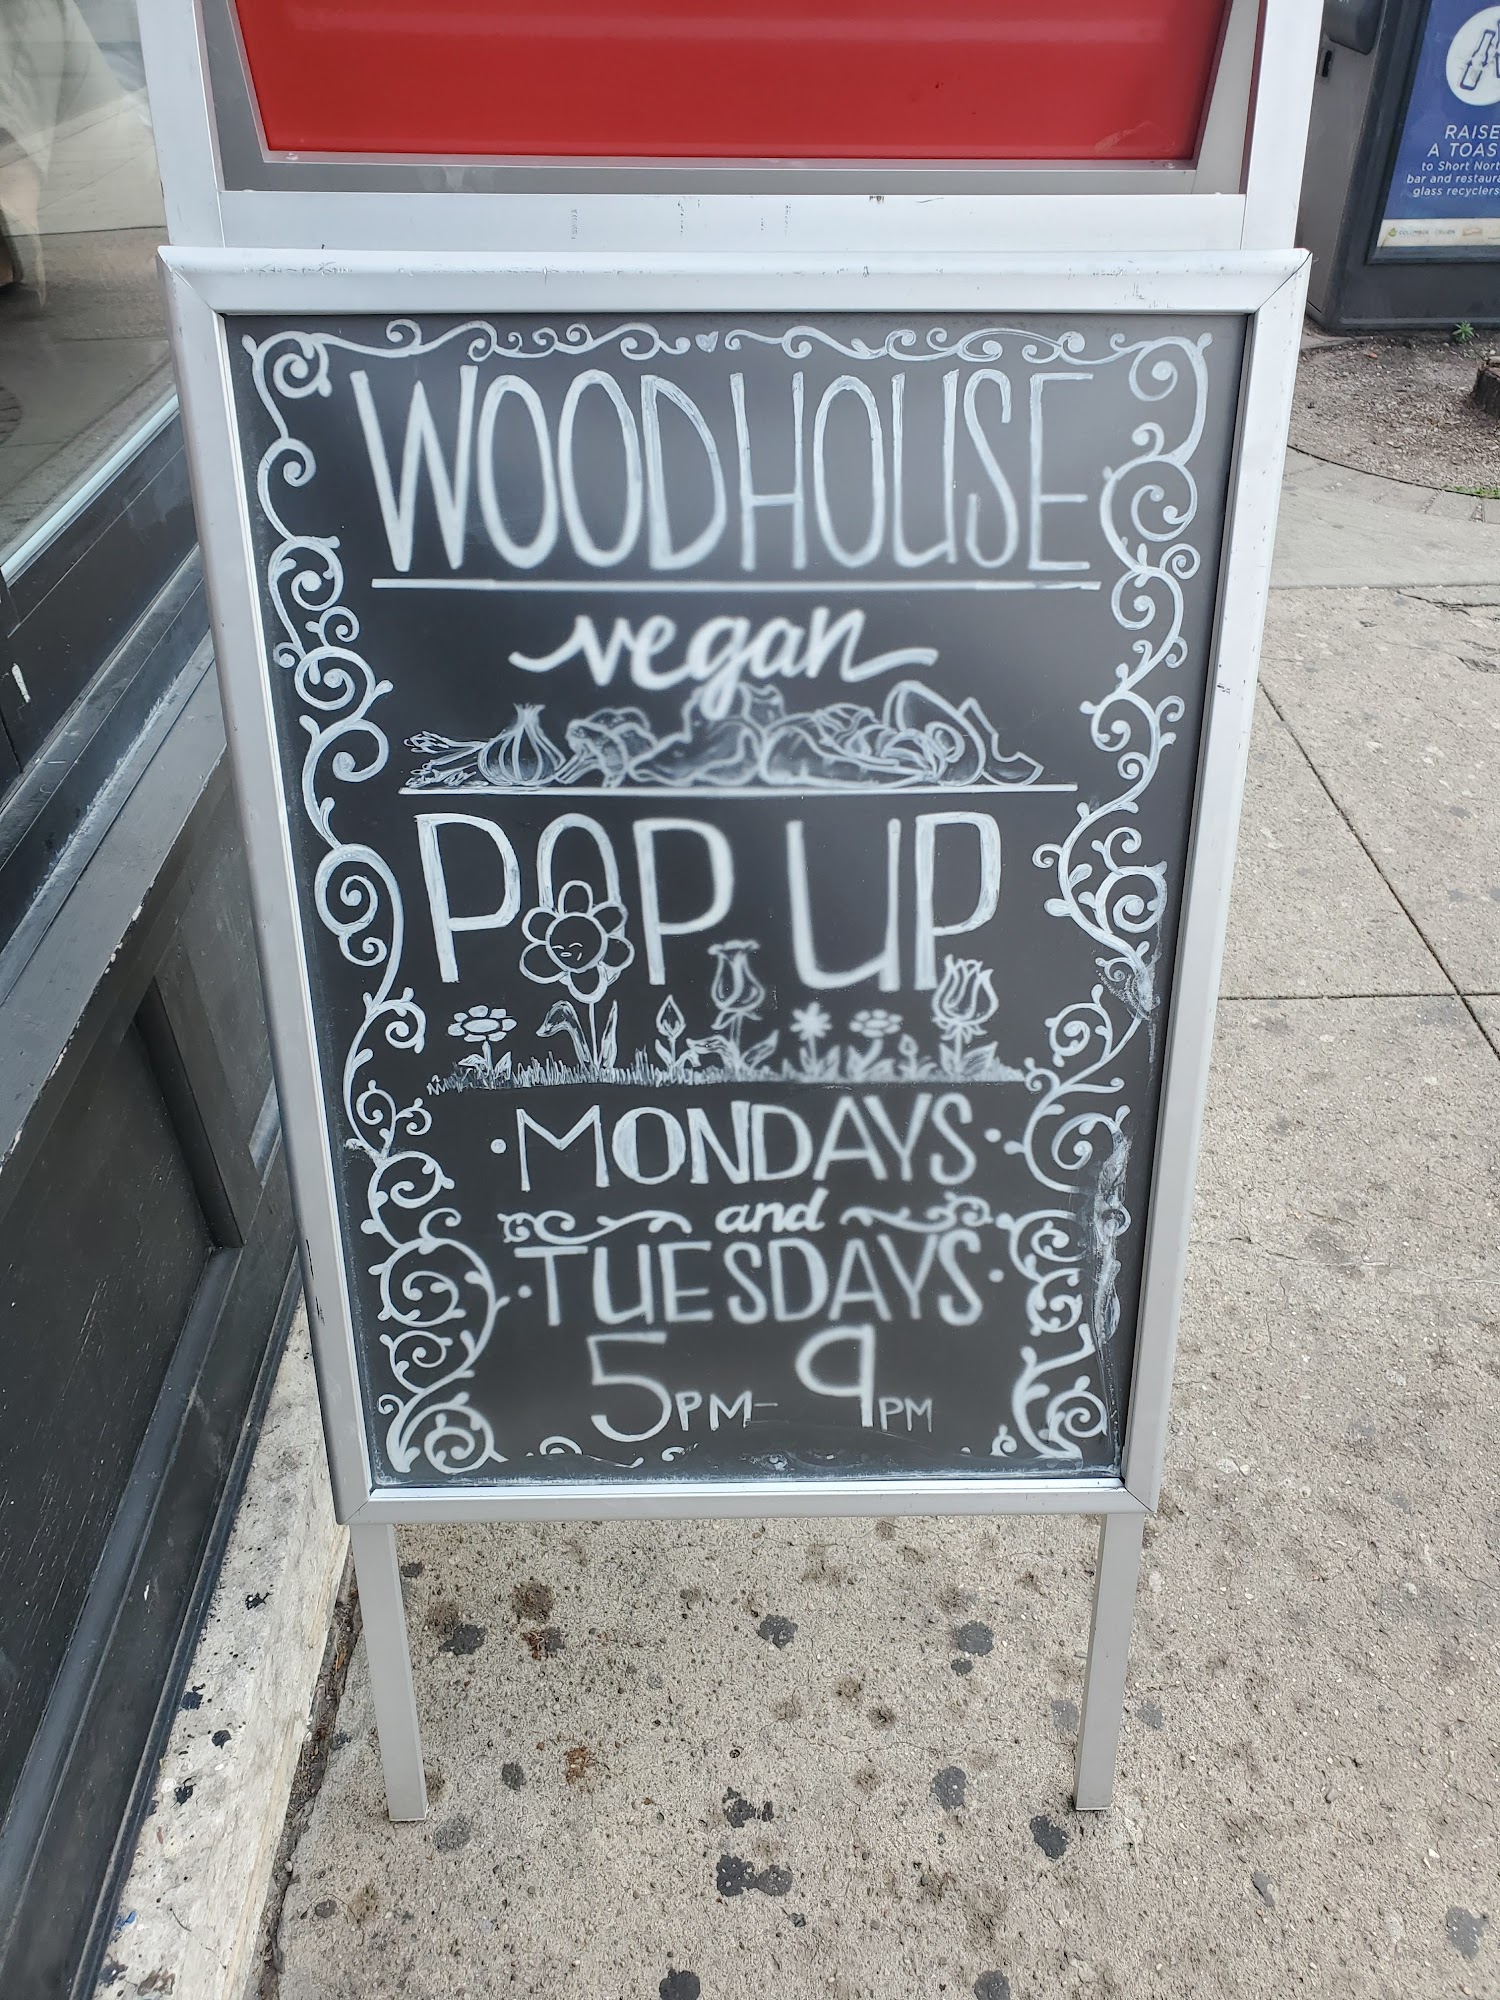 WOODHOUSE
vegan
POP UP
MONDAYS
and
TUESDAYS
5PM-9PM
RAISE
A TOAS
to Short Nort
bar and restaura
glass recyclers